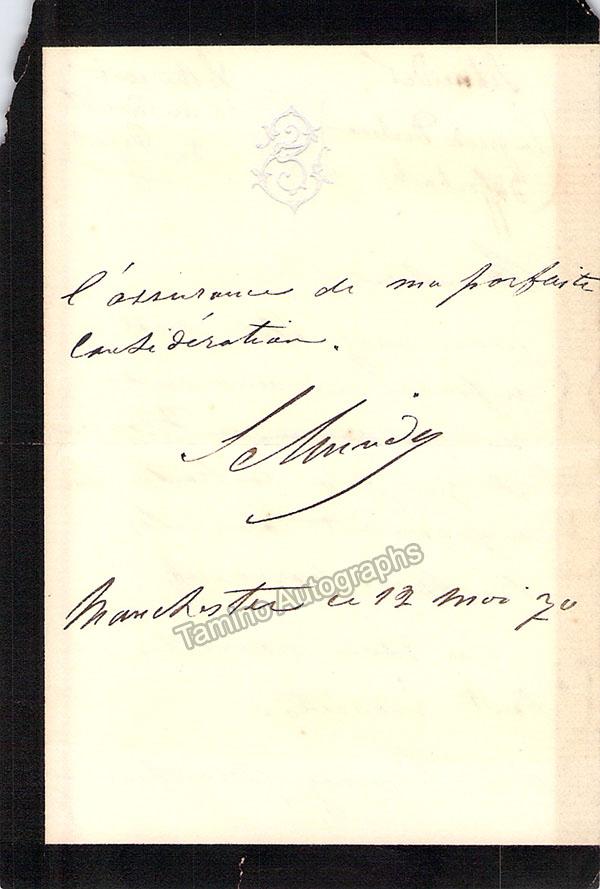 l'assurance de ma parfaite
Considération.
Schneider
Manchester ce 12 mai 70
Tamino Autographs